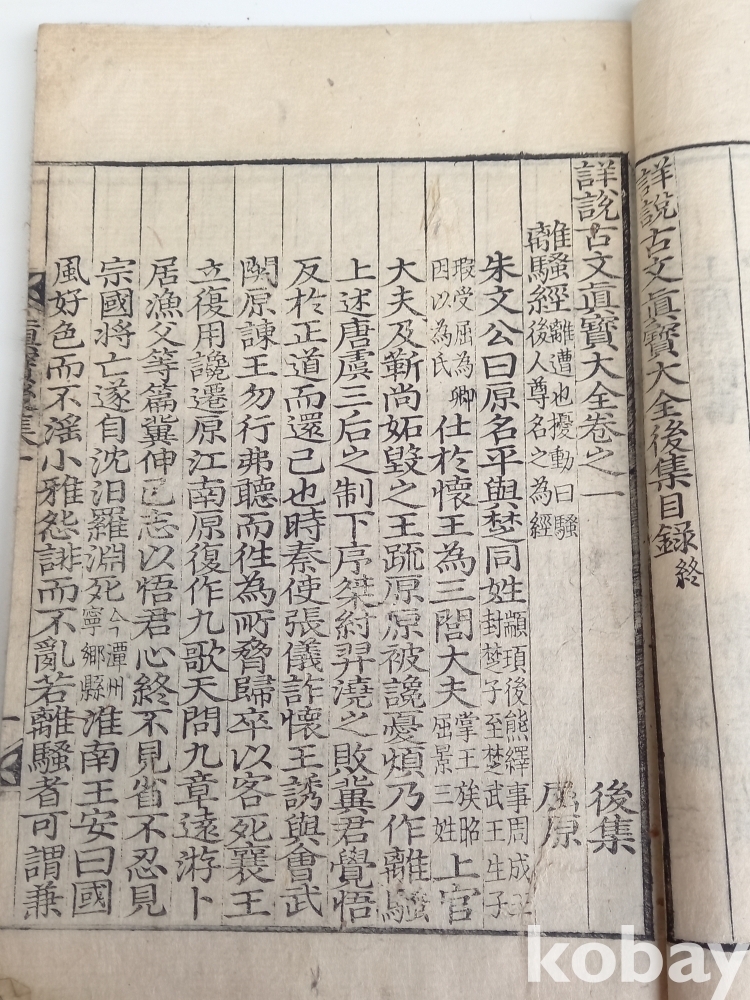 詳說古文眞寶大全後集目録終
詳說古文眞寶大全卷之一 後集
離騷經離遭也擾動曰騷後人尊名之為經 屈原
朱文公曰原名平與楚同姓顓頊後熊繹事周成王封楚子至楚武王生子
瑕受屈為卿因以為氏仕於懷王為三閭大夫掌王族昭屈景三姓上官
大夫及靳尚妬毀之王疏原原被讒憂煩乃作離騷
上述唐虞三后之制下序桀紂羿澆之敗冀君覺悟
反於正道而還己也時秦使張儀詐懷王誘與會武
関原諫王勿行弗聽而徃為所脅歸卒以客死襄王
立復用讒遷原江南原復作九歌天問九章遠游卜
居漁父等篇冀伸己志以悟君心終不見省不忍見
宗國將亡遂自沈汨羅淵死今潭州寧鄉縣淮南王安曰國
風好色而不滛小雅怨誹而不亂若離騷者可謂兼
眞寶後集一
一
kobay